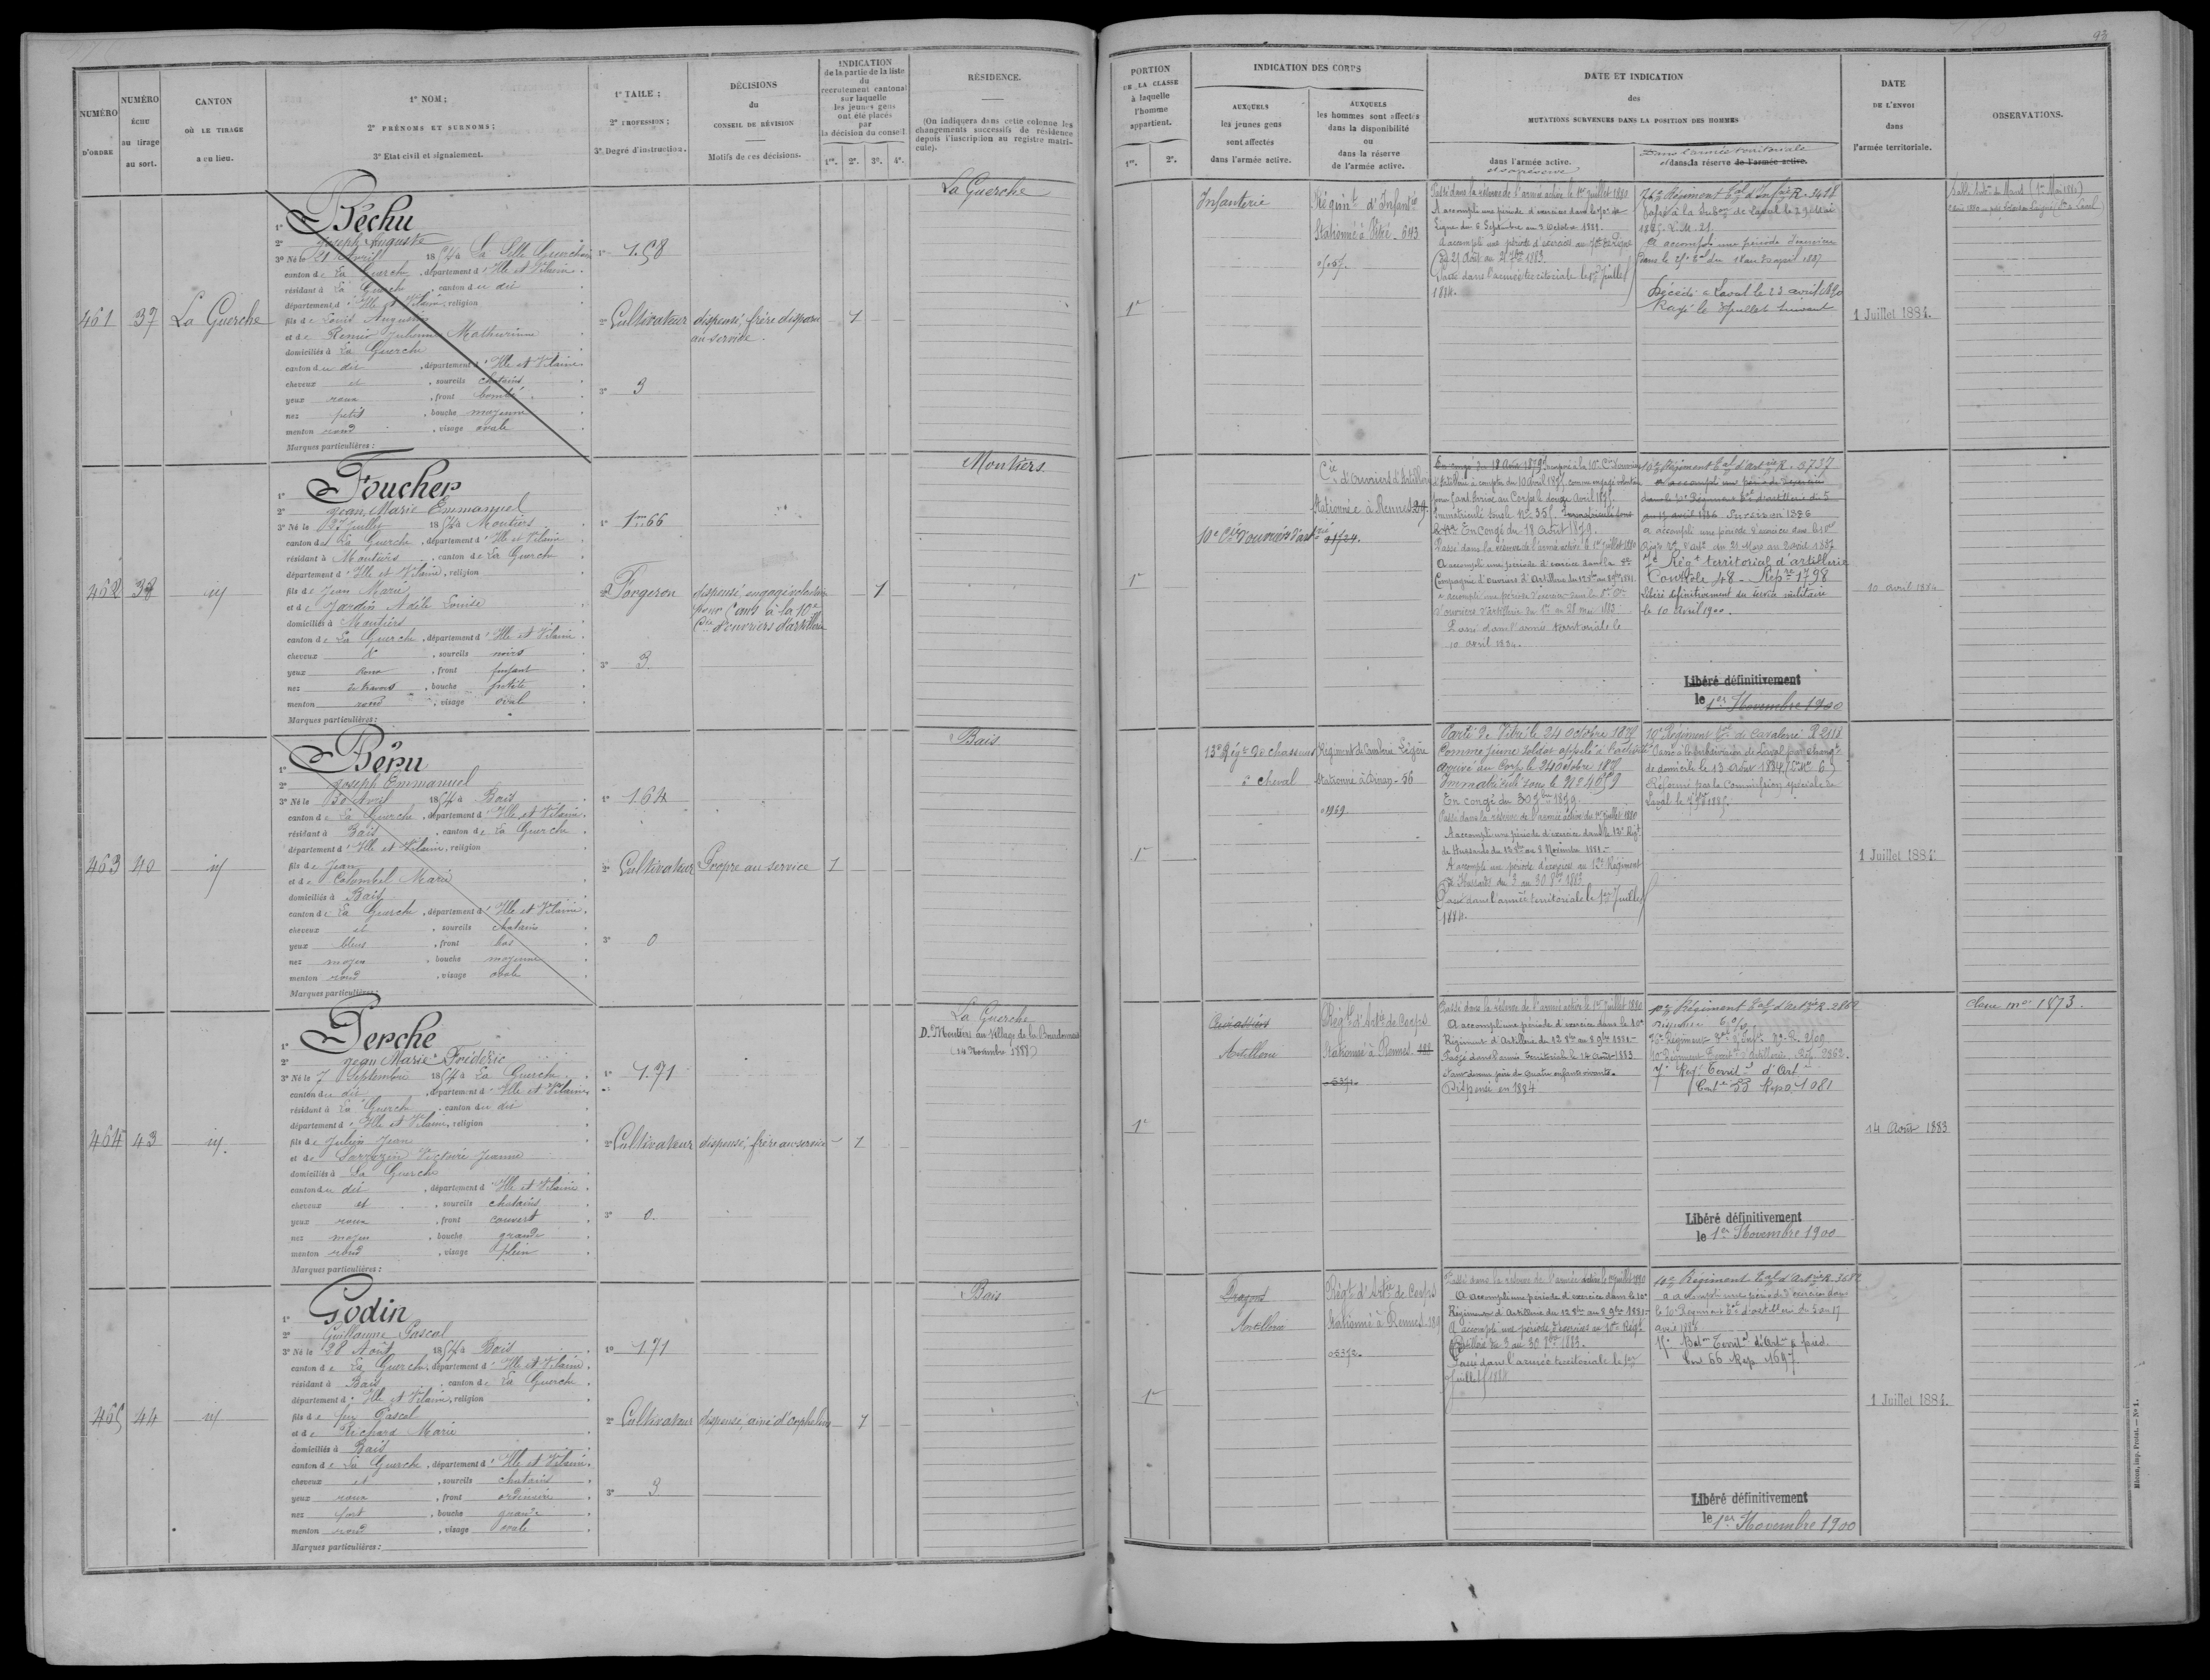 93
NUMÉRO D'ORDRE
NUMÉRO ÉCHU au tirage au sort.
CANTON OÙ LE TIRAGE a eu lieu.
1° NOM;
2° PRÉNOMS ET SURNOMS;
3° Etat civil et signalement.
1° TAILLE;
2° PROFESSION;
3° Degré d'instruction.
DÉCISIONS du CONSEIL DE RÉVISION
Motifs de ces décisions.
INDICATION de la partie de la liste du recrutement cantonal sur laquelle les jeunes gens ont été placés par la décision du conseil.
1re. 2e. 3e. 4e.
RÉSIDENCE.
(On indiquera dans cette colonne les changements successifs de résidence depuis l'inscription au registre matricule).
PORTION DE LA CLASSE à laquelle l'homme appartient.
1re. 2e.
INDICATION DES CORPS
AUXQUELS les jeunes gens sont affectés dans l'armée active.
AUXQUELS les hommes sont affectés dans la disponibilité ou dans la réserve de l'armée active.
DATE ET INDICATION des MUTATIONS SURVENUES DANS LA POSITION DES HOMMES
dans l'armée active. et sa réserve
Dans l'armée territoriale et dans la réserve de l'armée active.
DATE DE L'ENVOI dans l'armée territoriale.
OBSERVATIONS.
461
37
La Guerche
1° Béchu
2° Joseph Auguste
3° Né le 21 Avril 1854 à La Selle Guerchaise
canton de La Guerche, département d'Ille et Vilaine.
résidant à La Guerche, canton du dit
département d'Ille et Vilaine, religion
fils de Louis Augustin
et de Renier Julienne Mathurine
domiciliés à La Guerche
canton du dit, département d'Ille et Vilaine
cheveux et, sourcils chatains
yeux roux, front bombé
nez petit, bouche moyenne
menton rond, visage ovale
Marques particulières:
1° 1.58
2° Cultivateur
3° 3
dispensé, frère disparu
au service.
1
La Guerche
1re
Infanterie
Régimt d'Infantie
Stationné à Vitré - 643
Passé dans la réserve de l'armée active le 1er Juillet 1880
A accompli une période d'exercices dans le 70e de
Ligne du 6 Septembre au 3 Octobre 1881.
A accompli une période d'exercices au 70e de Ligne
Du 25 Août au 21 7bre 1883.
Passé dans l'armée territoriale le 1er Juillet
1884.
A accompli une période d'exercices
dans le 25e tal du 18 au 30 avril 1887
Décédé à Laval le 23 avril 1890
Rayé le 3 Juillet suivant
1 Juillet 1884.
462
38
id
1° Foucher
2° Jean Marie Emmanuel
3° Né le 27 Juillet 1854 à Moutiers
canton de La Guerche, département d'Ille et Vilaine
résidant à Moutiers, canton de La Guerche
département d'Ille et Vilaine, religion
fils de Jean Marie
et de Jardin Adèle Louise
domiciliés à Moutiers
canton de La Guerche, département d'Ille et Vilaine
cheveux, sourcils noirs
yeux roux, front fuyant
nez de travers, bouche petite
menton rond, visage oval
Marques particulières:
1° 1m66
2° Forgeron
3° 3
dispensé, engagé volontaire
pour 5 ans à la 10e
Cie d'ouvriers d'artillerie
1
Moutiers
1re
10e Cie d'ouvriers d'artie
Cie d'ouvriers d'Artillerie
Stationnée à Rennes 29.
01724.
En congé du 18 Août 1879
d'Artillerie à compter du 10 avril 1875 comme engagé volontaire
pour 5 ans. Arrivé au Corps le douze Avril 1875.
Immatriculé sous le No 355
En congé du 18 Août 1879.
Passé dans la réserve de l'armée active le 1er Juillet 1880
A accompli une période d'exercice dans la
Compagnie d'ouvriers d'Artillerie du 12 8bre au 8 9bre 1881.
d'ouvriers d'Artillerie du 1er au 28 mai 1883
Passé dans l'armée territoriale le
10 avril 1884.
10e Régiment tal d'Artie R. 3737
A accompli une période d'exercices
dans le 10e Régiment tal d'artillerie du 5
au 17 avril 1886. Sursis en 1886
a accompli une période d'exercices dans le 10e
Régt tal d'artie du 21 Mars au 2 avril 1887
7e Régt territorial d'artillerie
Contrôle 48 - Repre 1798
Libéré définitivement du service militaire
le 10 Avril 1900.
Libéré définitivement
le 1er Novembre 1900
10 avril 1884
463
40
id
1° Béru
2° Joseph Emmanuel
3° Né le 30 Avril 1854 à Bais
canton de La Guerche, département d'Ille et Vilaine.
résidant à Bais, canton de La Guerche
département d'Ille et Vilaine, religion
fils de Jean
et de Colombel Marie
domiciliés à Bais
canton de La Guerche, département d'Ille et Vilaine.
cheveux et, sourcils chatains
yeux bleus, front bas
nez moyen, bouche moyenne
menton rond, visage ovale
Marques particulières:
1° 1.64
2° Cultivateur
3° 0
Propre au service
1
Bais
1re
13e Régt de chasseurs
à cheval
Régiment de Cavalerie Légère
Stationné à Dinan - 56
01969.
Parti de Vitré le 24 Octobre 1875
Comme jeune soldat appelé à l'activité
Arrivé au Corps le 24 Octobre 1875
Immatriculé sous le No 4059
En congé du 30 7bre 1879.
Passé dans la réserve de l'armée active du 1er Juillet 1880
A accompli une période d'exercices dans le 12e Régt
de Hussards du 12 8bre au 8 Novembre 1881.-
A accompli une période d'exercices au 12e Régiment
de Hussards du 3 au 30 8bre 1883.
Passé dans l'armée territoriale le 1er Juillet
1884.
10e Régiment tal de Cavalerie R 2118
Passé à la subdivision de Laval pour changt
de domicile le 13 Août 1884
Réformé par la Commission spéciale de
Laval le 7 1885.
1 Juillet 1884.
464
43
id.
1° Perche
2° Jean Marie Frédéric
3° Né le 7 Septembre 1854 à La Guerche
canton du dit, département d'Ille et Vilaine
résidant à La Guerche, canton du dit
département d'Ille et Vilaine, religion
fils de Julien Jean
et de Sarrazin Victoire Jeanne
domiciliés à La Guerche
canton du dit, département d'Ille et Vilaine
cheveux et, sourcils chatains
yeux roux, front couvert
nez moyen, bouche grande
menton rond, visage plein
Marques particulières:
1° 1.71
2° Cultivateur
3° 0.
dispensé, frère au service
1
La Guerche
D. Moutiers au village de la
(14 Novembre 1888)
1re
Cuirassiers
Artillerie
Régt d'Artie de Corps
Stationné à Rennes. 188
05371.
Passé dans la réserve de l'armée active le 1er Juillet 1880
A accompli une période d'exercice dans le 10e
Régiment d'Artillerie du 12 8bre au 8 9bre 1881.-
Passé dans l'armée Territoriale le 14 Août 1883
étant devenu père de quatre enfants vivants.
Dispensé en 1884
10e Régiment tal d'Artie R. 2862
10e Régiment Territl d'Artillerie. Rép. 2862.
7e Régt Territl d'Artie
Conte 53 Repre 1081
Libéré définitivement
le 1er Novembre 1900
14 Août 1883
Classe mre 1873.
465
44
id
1° Godin
2° Guillaume Pascal
3° Né le 28 Août 1854 à Bais
canton de La Guerche, département d'Ille et Vilaine.
résidant à Bais, canton de La Guerche
département d'Ille et Vilaine, religion
fils de feu Pascal
et de Richard Marie
domiciliés à Bais
canton de La Guerche, département d'Ille et Vilaine.
cheveux et, sourcils chatains
yeux roux, front ordinaire
nez fort, bouche grande
menton rond, visage ovale
Marques particulières:
1° 1.71
2° Cultivateur
3° 3
dispensé, ainé d'orphelins
1
Bais
1re
Dragons
Artillerie
Régt d'Artie de Corps
Stationné à Rennes. 189
05372.
Passé dans la réserve de l'armée active le 1er Juillet 1880
A accompli une période d'exercice dans le 10e
Régiment d'Artillerie du 12 8bre au 8 9bre 1881.-
A accompli une période d'exercices au 10e Régt
d'Artillerie du 3 au 30 8bre 1883.
Passé dans l'armée territoriale le 1er
Juillet 1884
10e Régiment tal d'Artie R. 3682
a accompli une période d'exercices dans
le 10e Régiment tal d'artillerie du 5 au 17
avril 1886
Baton Territal d'Artie à pied.
Con 66 Rep 1697.
Libéré définitivement
le 1er Novembre 1900
1 Juillet 1884.
Mâcon, imp. Protat. — No 1.